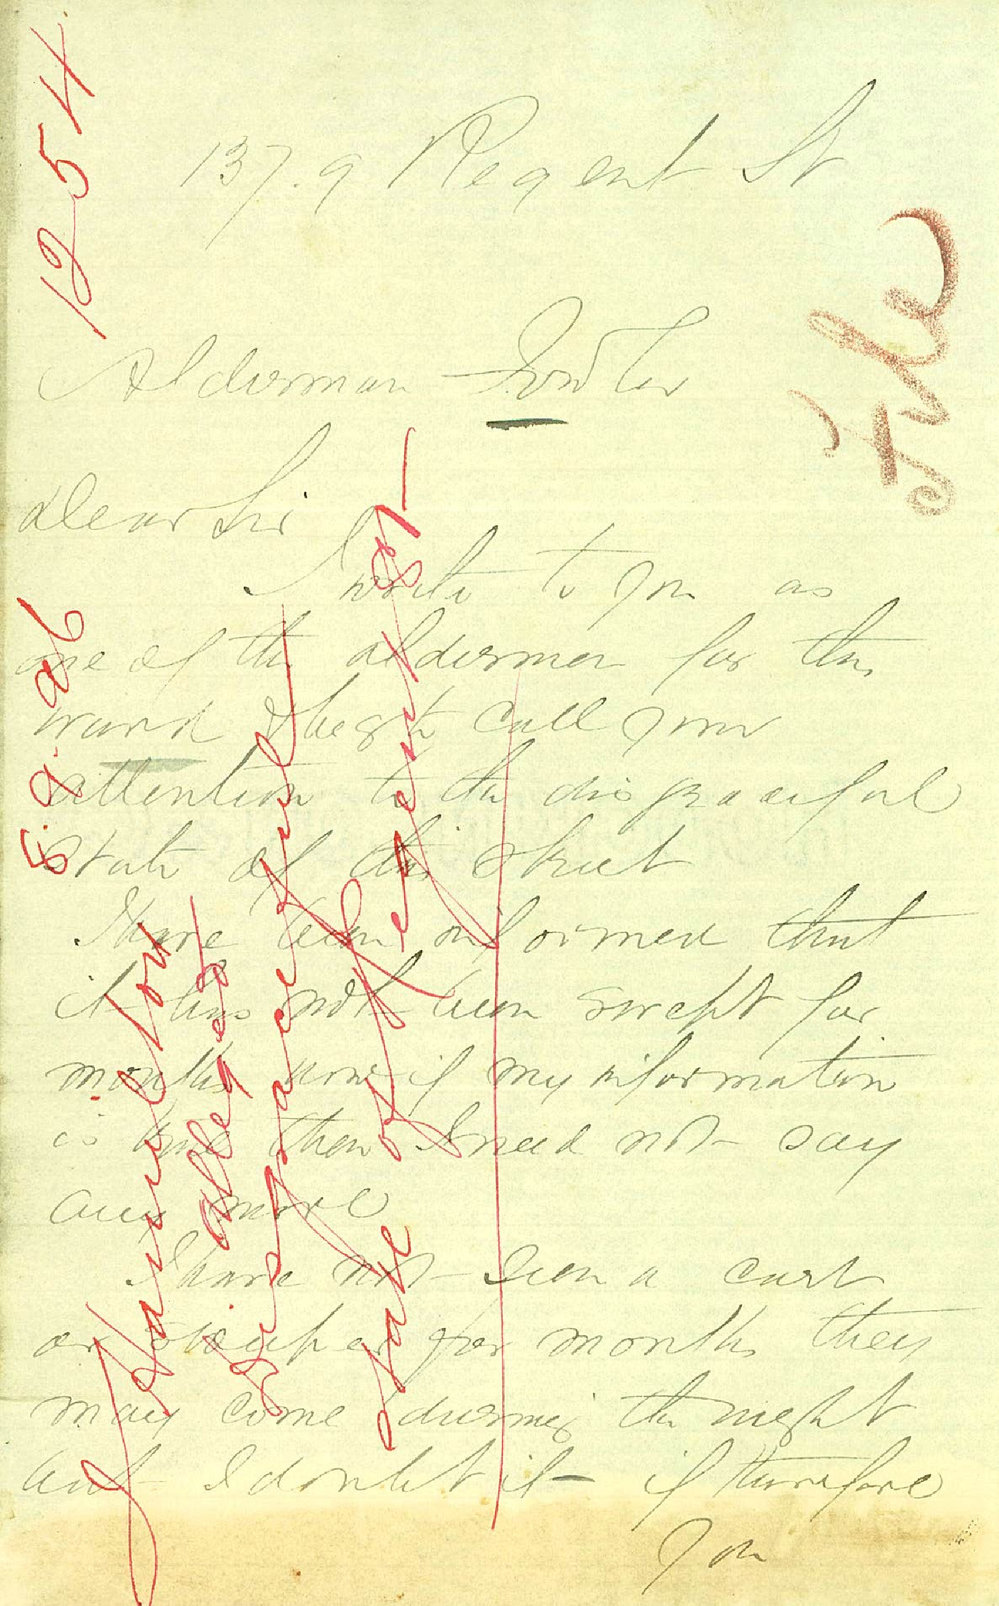 137.9 Regent St
Alderman Fowler
Dear Sir
I write to you as
one of the aldermen for this
ward & beg to call your
attention to the disgraceful
state of this street
I have been informed that
it has not been swept for
months now if my information
is true then I need not say
any more
I have not seen a cart
or sweeper for months they
may come during the night
but I doubt it - if therefore
you
1254
8.9.26
J Hamilton
alleged
disgraceful
state of Regent St-
File